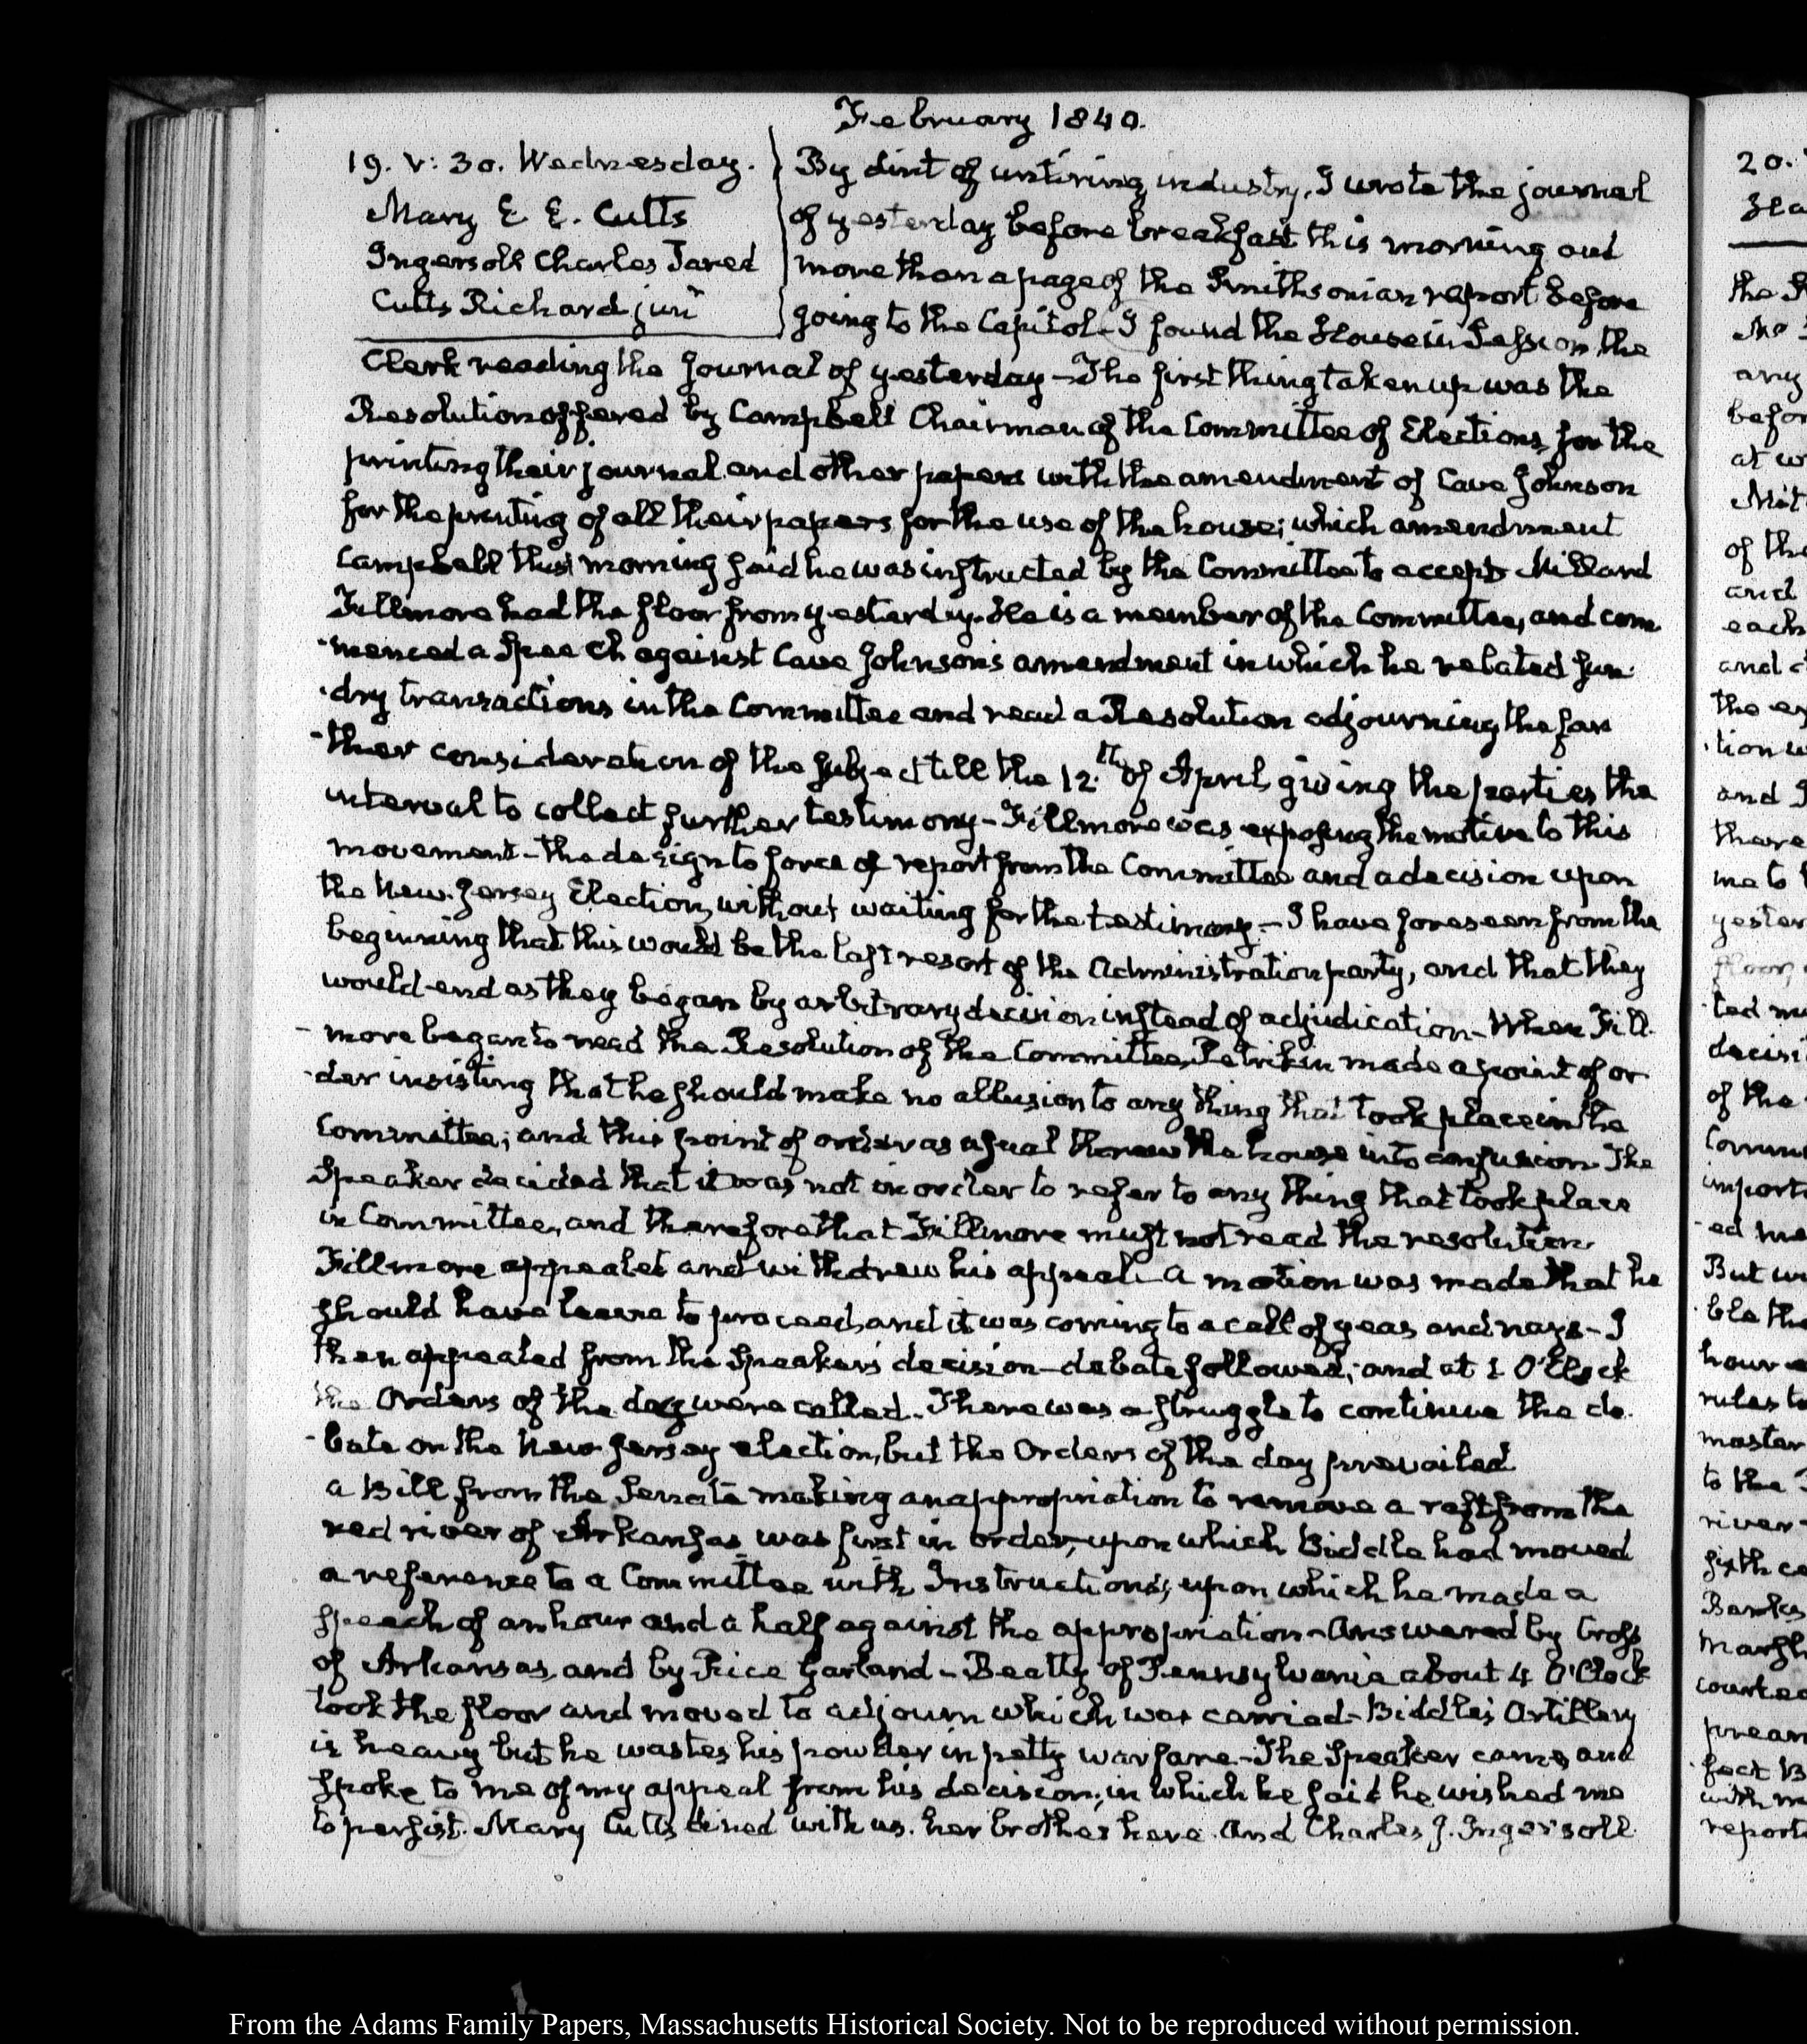 February 1840.
19. V: 30. Wednesday.
Mary E. E. Cutts
Ingersoll Charles Jared
Cutts Richard junr
By dint of untiring industry, I wrote the journal
of yesterday before breakfast this morning and
more than a page of the Smithsonian report before
going to the Capitol - I found the House in Session the
Clerk reading the journal of yesterday - The first thing taken up was the
Resolution offered by Campbell Chairman of the Committee of Elections, for the
printing their journal and other papers with the amendment of Cave Johnson
for the printing of all their papers for the use of the house; which amendment
Campbell this morning said he was instructed by the Committee to accept Millard
Fillmore had the floor from yesterdy. He is a member of the Committee, and com
-menced a Speech against Cave Johnson's amendment in which he related sun
-dry transactions in the Committee and read a Resolution adjourning the far
-ther consideration of the subject till the 12.th of April, giving the parties the
interval to collect further testimony - Fillmore was exposing the motive to this
movement - the design to force a report from the Committee and a decision upon
the New-Jersey Election, without waiting for the testimony - I have foreseen from the
beginning that this would be the last resort of the Administration party, and that they
would end as they began by arbitrary decision instead of adjudication - When Fill-
-more began to read the Resolution of the Committee, Petrikin made a point of or
-der insisting that he should make no allusion to any thing that took place in the
Committee; and this point of order as usual threw the house into confusion. The
Speaker decided that it was not in order to refer to any thing that took place
in Committee, and therefore that Fillmore must not read the resolution.
Fillmore appealed and withdrew his appeal. A motion was made that he
should have leave to proceed, and it was coming to a call of yeas and nays - I
then appealed from the Speaker's decision - debate followed; and at 1 O'Clock
the Orders of the day were called. There was a struggle to continue the de
-bate on the New-Jersey election, but the Orders of the day prevailed
a Bill from the Senate making an appropriation to remove a raft from the
red river of Arkansas was first in order, upon which Biddle had moved
a reference to a Committee with Instructions; upon which he made a
speech of an hour and a half against the appropriation - Answered by Cross
of Arkansas, and by Rice Garland - Beatty of Pennsylvania about 4 O'Clock
took the floor and moved to adjourn which was carried - Biddle's Artillery
is heavy but he wastes his powder in petty warfare - The Speaker came and
spoke to me of my appeal from his decision; in which he said he wished me
to persist. Mary Cutts dined with us. her brother here. And Charles J. Ingersoll.
20.
the
any
befor
at
of the
and
each
and
the
tion
and
there
me to
yester
floor,
decisi
of the
Comm
import
ed
But
ble the
hour
rules to
master
to the
river
sixth
Banks
Marsh
fact B
with m
report
From the Adams Family Papers, Massachusetts Historical Society. Not to be reproduced without permission.